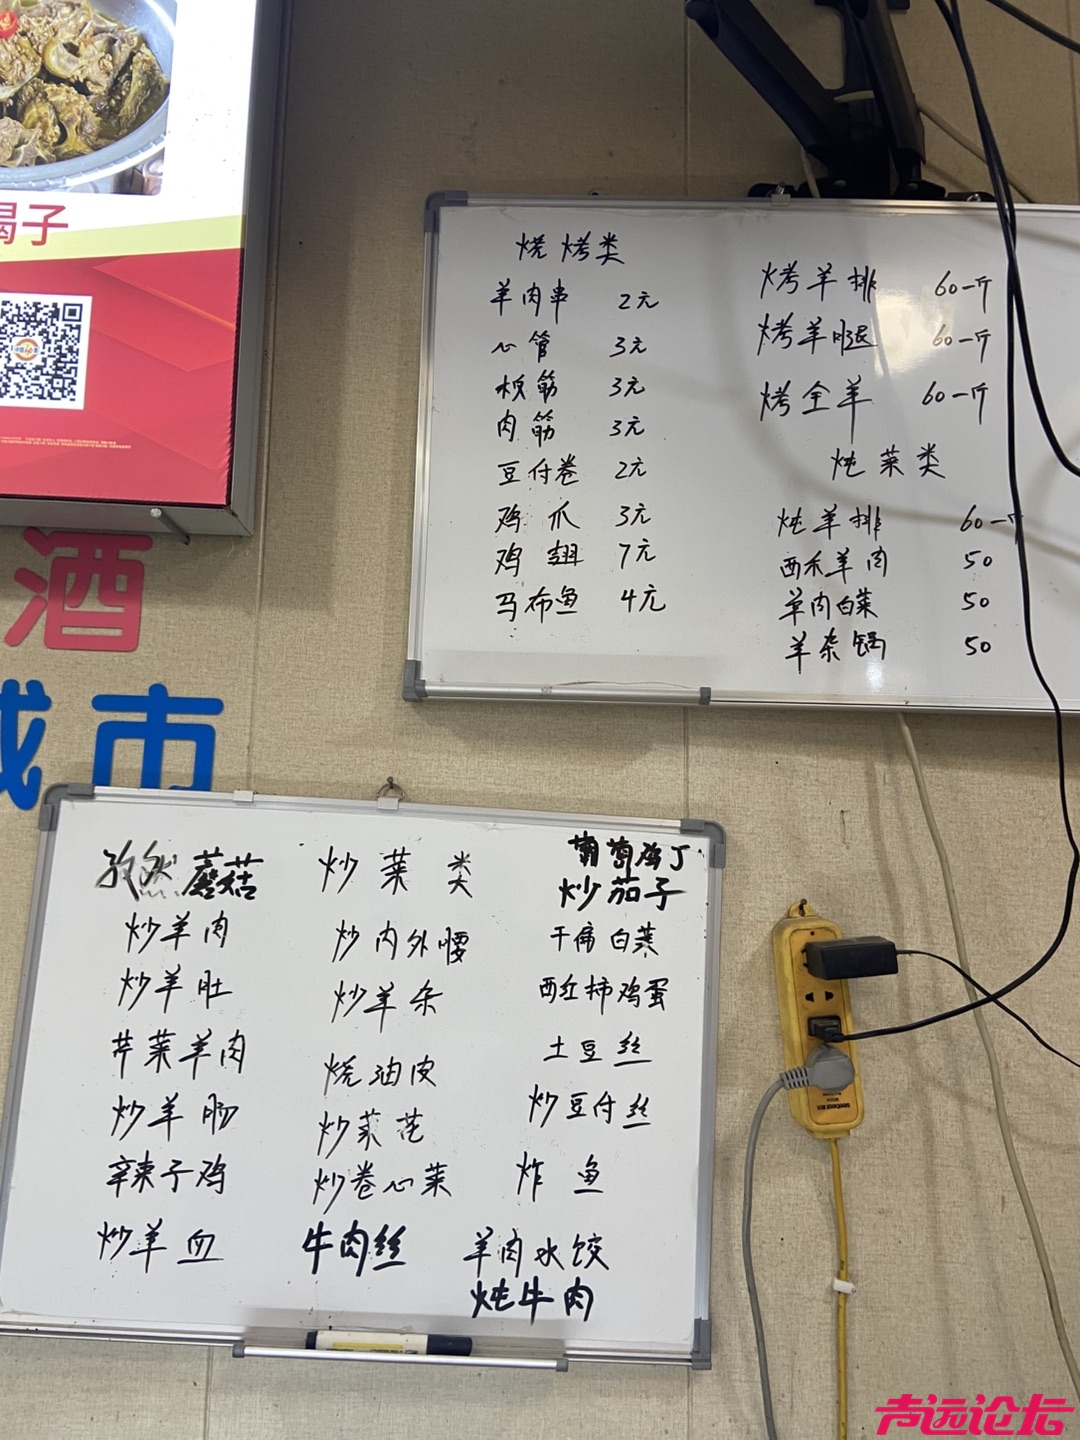 蝎子
酒
城市
烧烤类
羊肉串 2元
心管 3元
板筋 3元
肉筋 3元
豆付卷 2元
鸡爪 3元
鸡翅 7元
马布鱼 4元
烤羊排 60一斤
烤羊腿 60一斤
烤全羊 60一斤
炖菜类
炖羊排 60一斤
西禾羊肉 50
羊肉白菜 50
羊杂锅 50
炒菜类
孜然蘑菇
炒羊肉
炒羊肚
芹菜羊肉
炒羊肠
辣子鸡
炒羊血
炒内外腰
炒羊杂
烧油皮
炒菜花
炒卷心菜
牛肉丝
葡萄鸡丁
炒茄子
干俑白菜
西红柿鸡蛋
土豆丝
炒豆付丝
炸鱼
羊肉水饺
炖牛肉
声远论坛